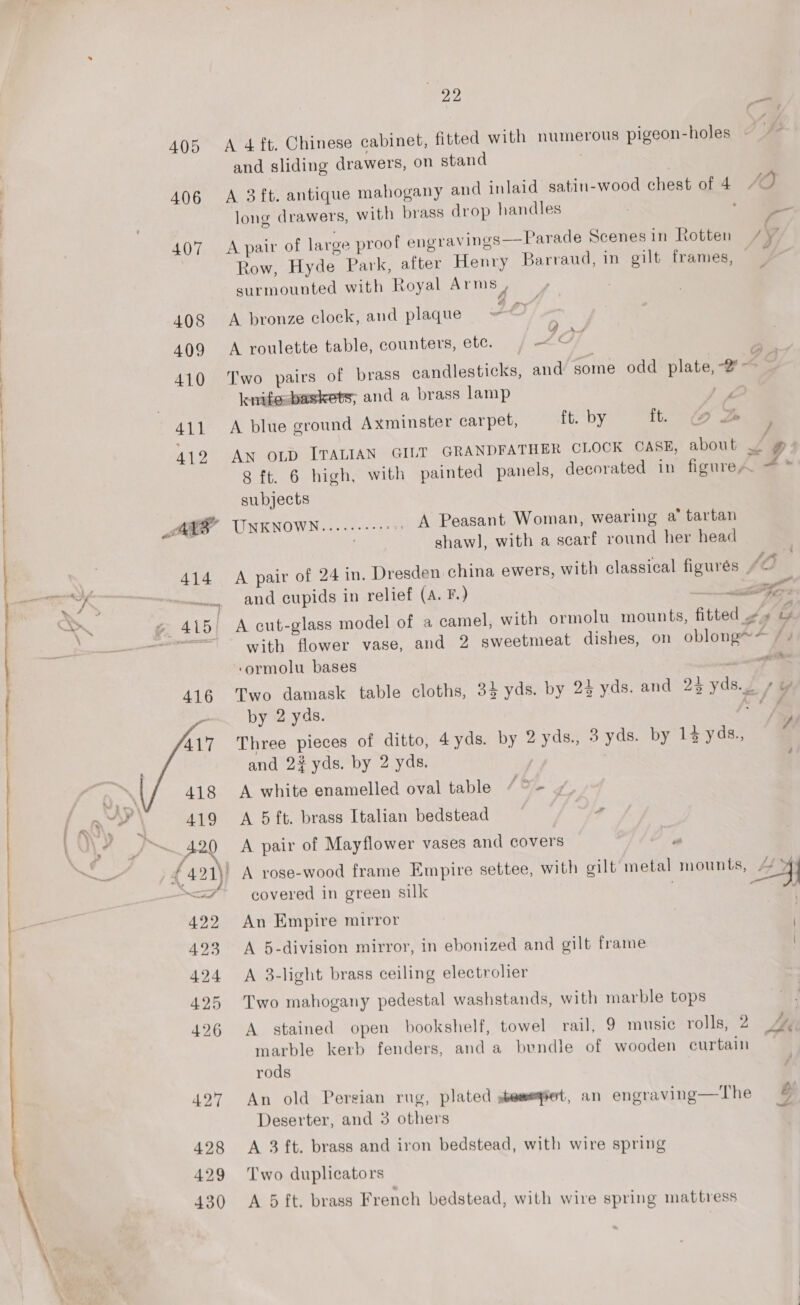 22
405 A 4 ft. Chinese cabinet, fitted with numerous pigeon-holes
and sliding drawers, on stand
406 A 3 ft. antique mahogany and inlaid satin-wood chest of 4
long drawers, with brass drop handles
407 A pair of large proof engravings—Parade Scenes in Rotten
Row, Hyde Park, after Henry Barraud, in gilt frames,
surmounted with Royal Arms
408 A bronze clock, and plaque
409 A roulette table, counters, etc.
410 Two pairs of brass candlesticks, and some odd plate, 2
knife-baskets, and a brass lamp
411 A blue ground Axminster carpet, ft. by ft.
412 AN OLD ITALIAN GILT GRANDFATHER CLOCK CASE, about
8 ft. 6 high, with painted panels, decorated in figure
subjects
413 UNKNOWN............ A Peasant Woman, wearing a tartan
shawl, with a scarf round her head
414 A pair of 24 in. Dresden china ewers, with classical figures
and cupids in relief (A. F.)
415 A cut-glass model of a camel, with ormolu mounts, fitted
with flower vase, and 2 sweetmeat dishes, on oblong
ormolu bases
416 Two damask table cloths, 3½ yds. by 2½ yds. and 2½ yds.
by 2 yds.
417 Three pieces of ditto, 4 yds. by 2 yds., 3 yds. by 1½ yds.,
and 2¾ yds. by 2 yds.
418 A white enamelled oval table
419 A 5 ft. brass Italian bedstead
420 A pair of Mayflower vases and covers
421 A rose-wood frame Empire settee, with gilt metal mounts,
covered in green silk
422 An Empire mirror
423 A 5-division mirror, in ebonized and gilt frame
424 A 3-light brass ceiling electrolier
425 Two mahogany pedestal washstands, with marble tops
426 A stained open bookshelf, towel rail, 9 music rolls, 2
marble kerb fenders, and a bundle of wooden curtain
rods
427 An old Persian rug, plated an engraving—The
Deserter, and 3 others
428 A 3 ft. brass and iron bedstead, with wire spring
429 Two duplicators
430 A 5 ft. brass French bedstead, with wire spring mattress